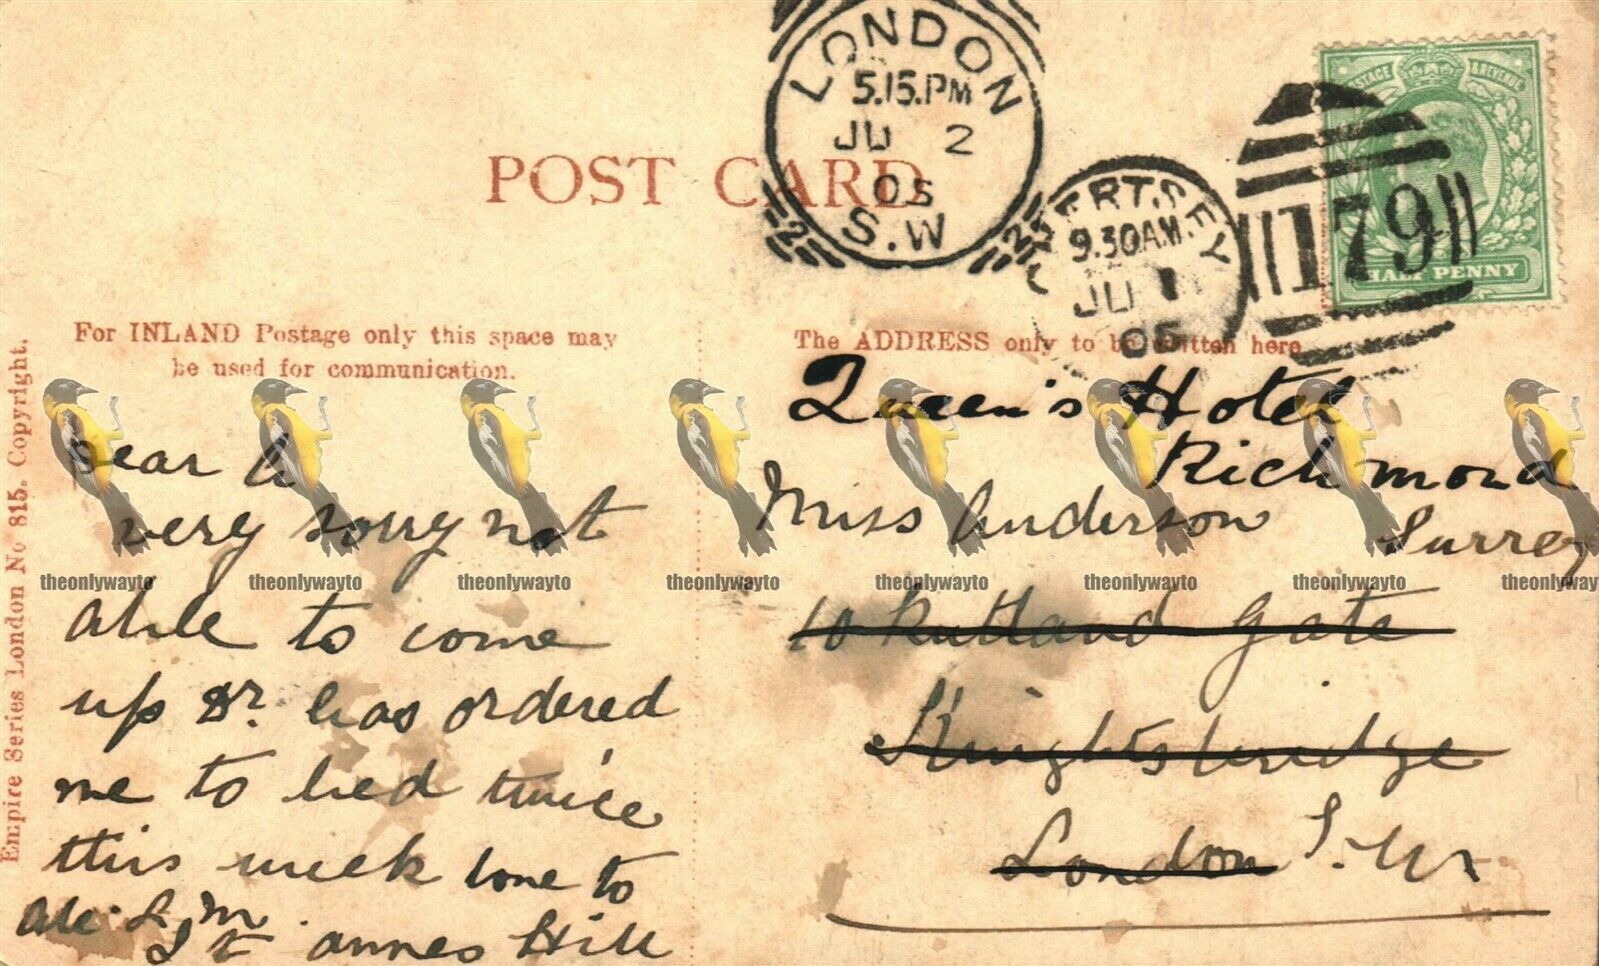 LONDON
5.15.PM
JU 2
05
S.W
2 2
CHERTSEY
9.30A.M.
JU 1
05
179
POSTAGE & REVENUE
HALF PENNY
POST CARD
For INLAND Postage only this space may
be used for communication.
The ADDRESS only to be written here.
Empire Series London No 815. Copyright.
Dear A
very sorry not
able to come
up Dr. has ordered
me to bed twice
this week love to
all. L. M.
St annes Hill
Queen's Hotel
Richmond
Surrey
Miss Anderson
10 Rutland Gate
Knightsbridge
London S.W.
theonlywayto theonlywayto theonlywayto theonlywayto theonlywayto theonlywayto theonlywayto theonlywayto